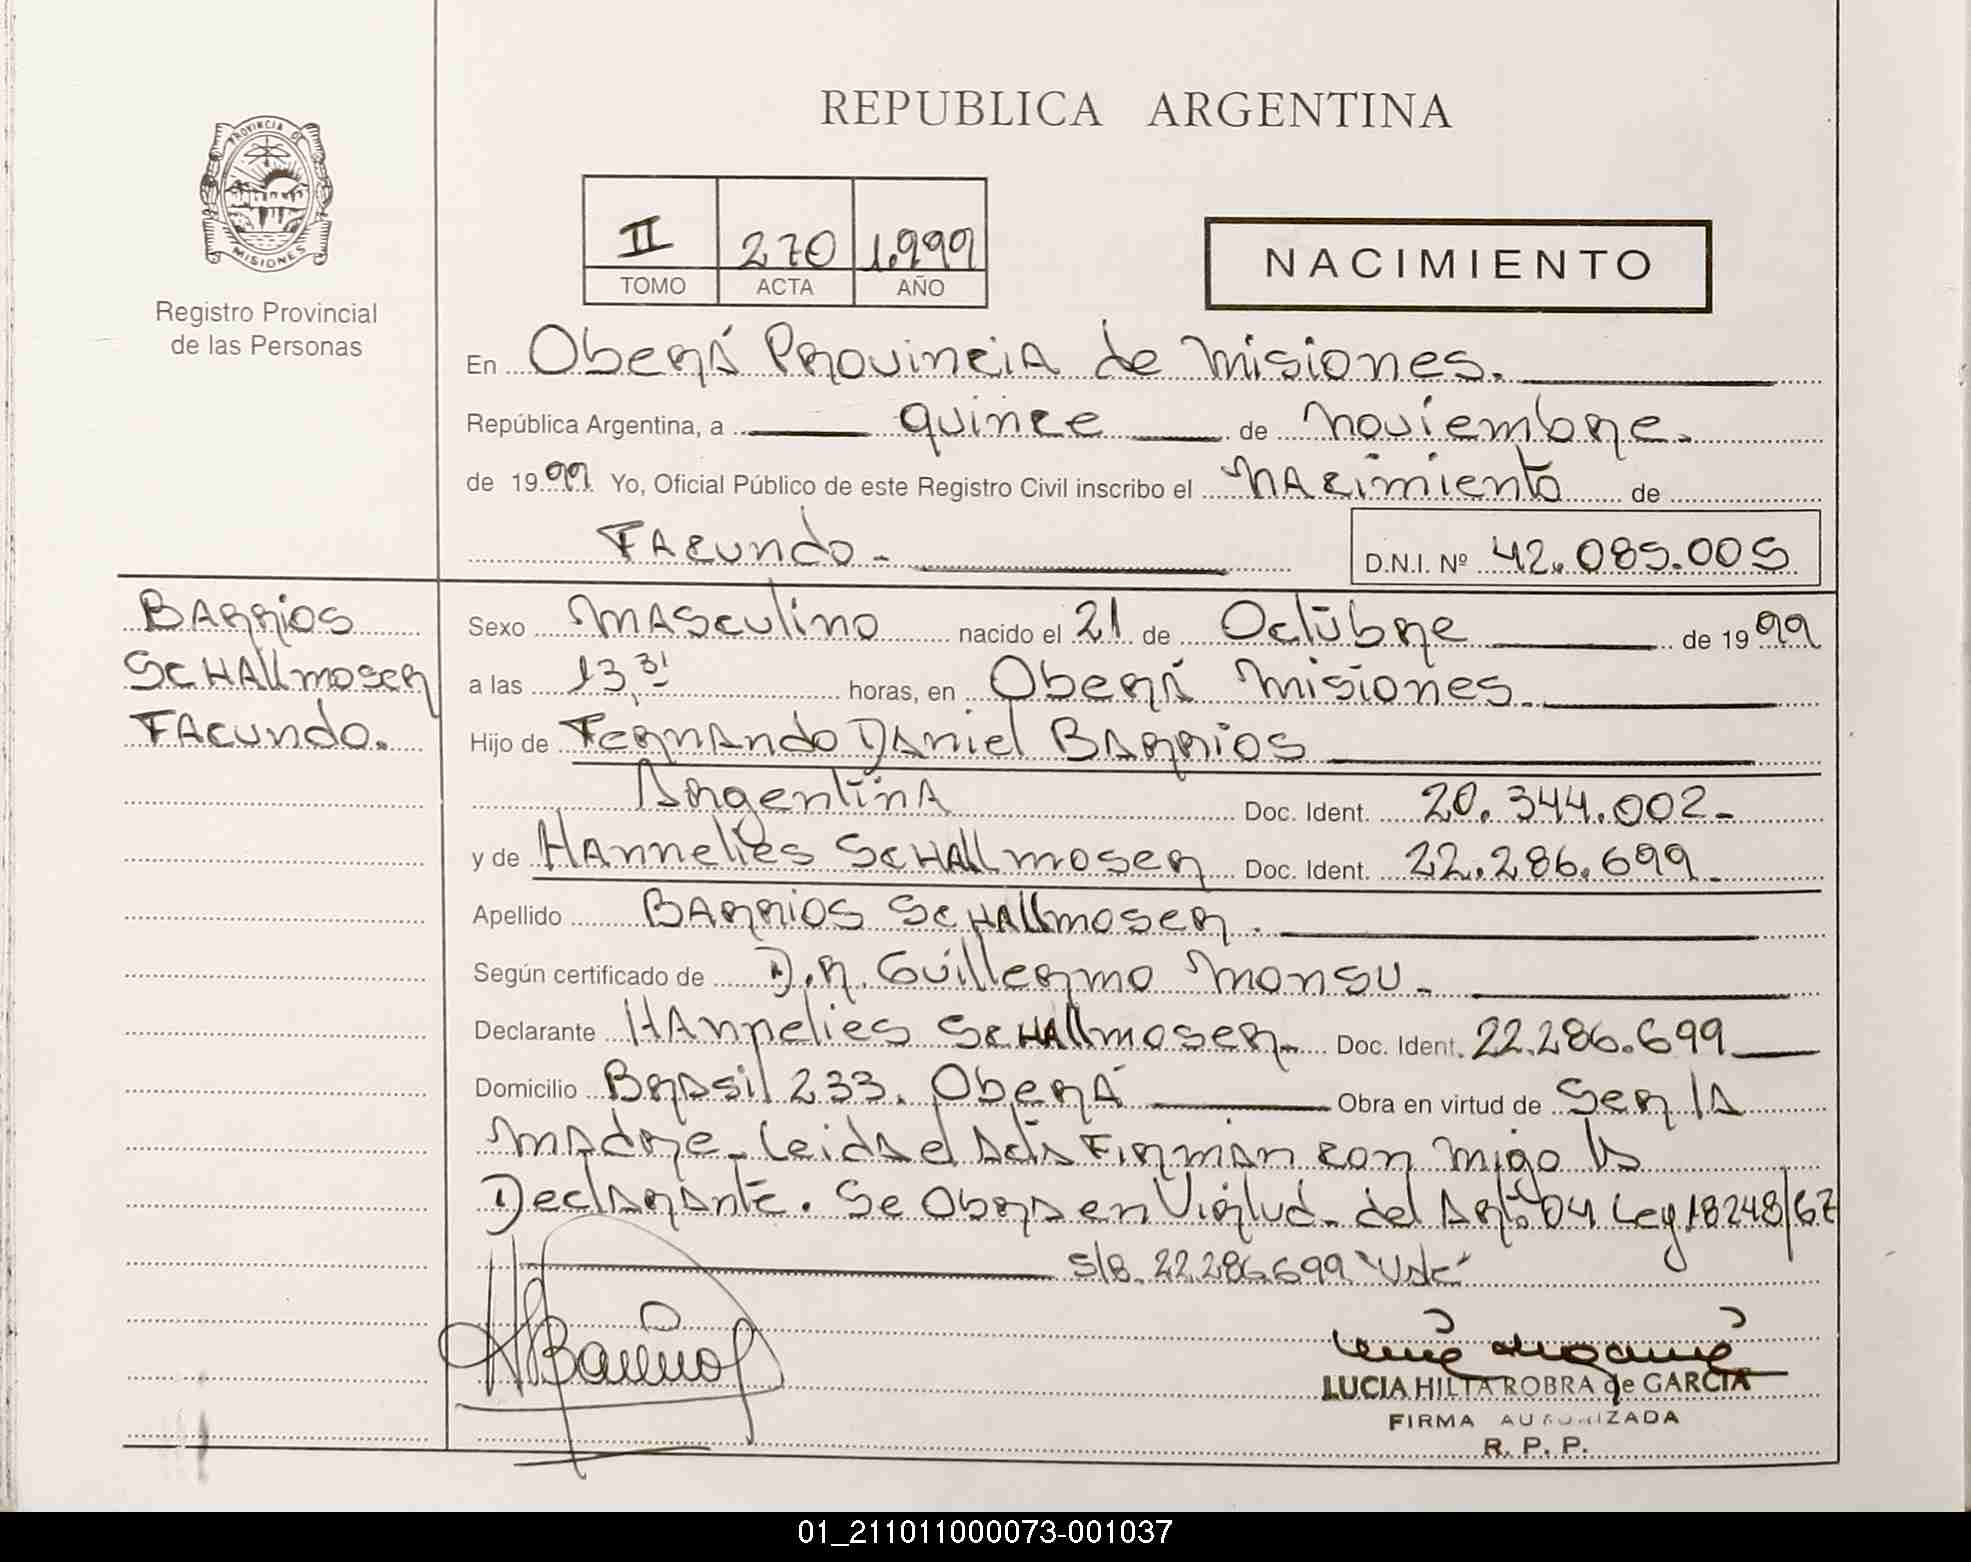 REPUBLICA ARGENTINA
PROVINCIA DE
MISIONES
Registro Provincial
de las Personas
II 270 1.999
TOMO ACTA AÑO
NACIMIENTO
En Oberá Provincia de Misiones.
República Argentina, a quince de noviembre.
de 1999 Yo, Oficial Público de este Registro Civil inscribo el nacimiento de
Facundo.- D.N.I. Nº 42.085.005
Barrios
Schallmoser
Facundo.
Sexo Masculino nacido el 21 de Octubre de 1999
a las 13,31 horas, en Oberá Misiones.
Hijo de Fernando Daniel Barrios
Argentina Doc. Ident. 20.344.002-
y de Hannelies Schallmoser Doc. Ident. 22.286.699.
Apellido Barrios Schallmoser.
Según certificado de D.R. Guillermo Monsu.
Declarante Hannelies Schallmoser. Doc. Ident. 22.286.699
Domicilio Brasil 233. Oberá Obra en virtud de Ser la
Madre. Leida el Acta Firman con migo la
Declarante. Se Obra en Virtud. del Art: 04 Ley 18248/67
S/B. 22.286.699 "Vale"
HBarrios
LUCIA HILTA ROBRA de GARCIA
FIRMA AUTORIZADA
R. P. P.
01_211011000073-001037